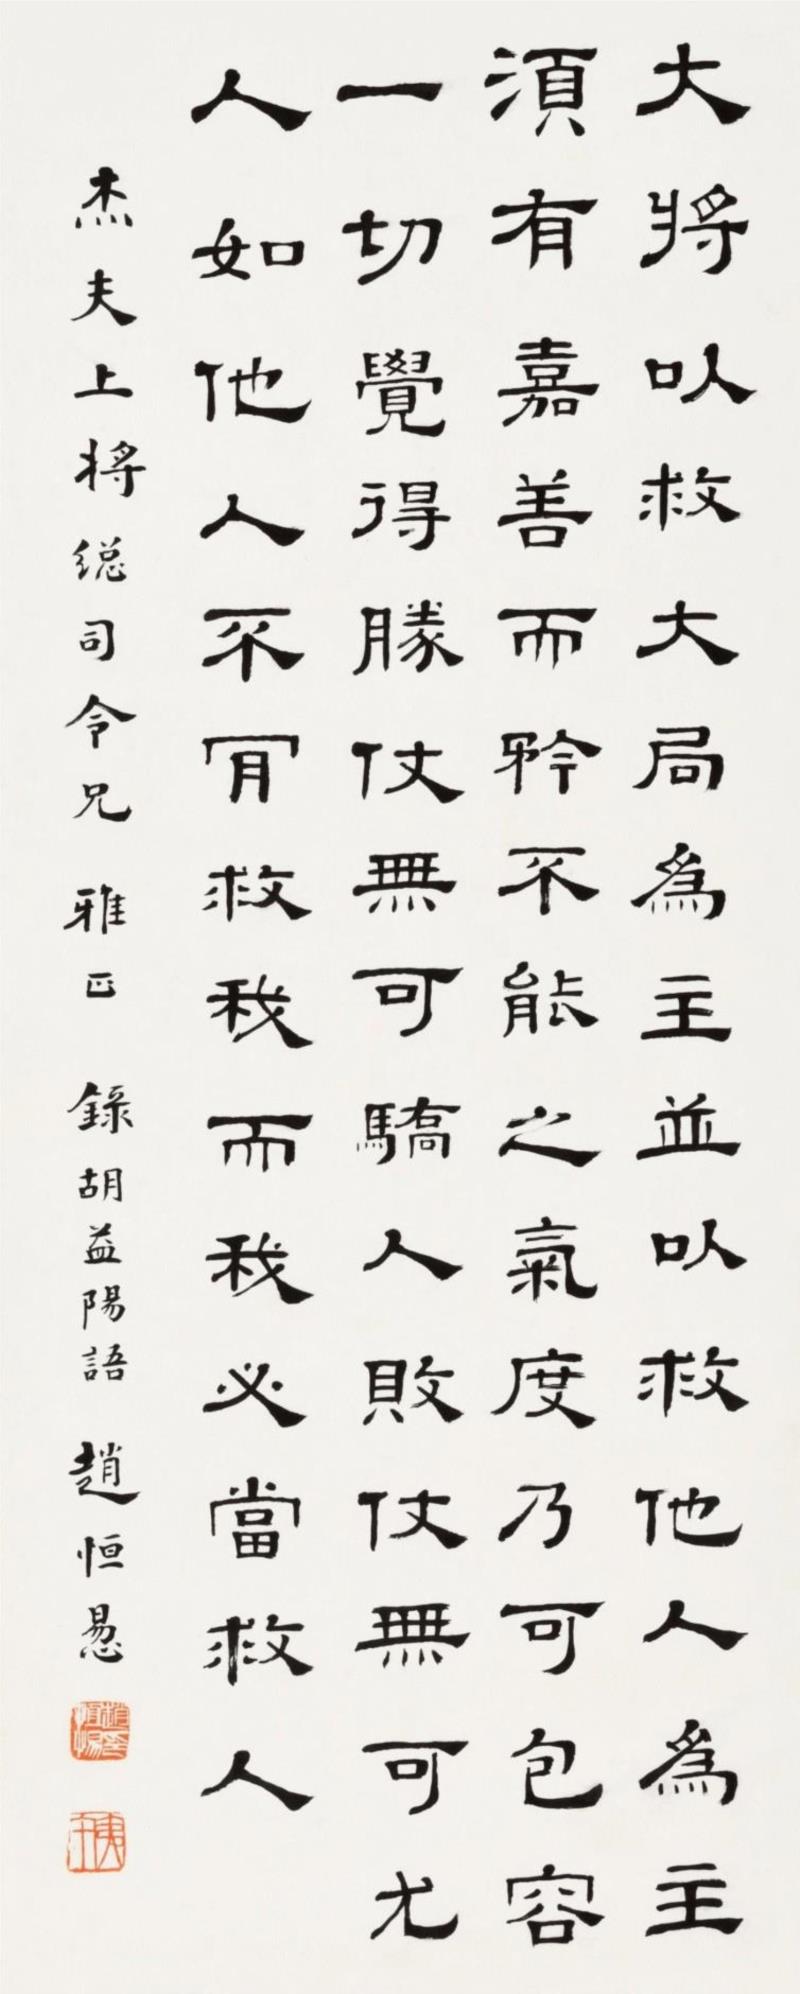 大將以救大局爲主並以救他人爲主
須有嘉善而矜不能之氣度乃可包容
一切覺得勝仗無可驕人敗仗無可尤
人如他人不肎救我而我必當救人
杰夫上將總司令兄 雅正 錄胡益陽語 趙恒惖